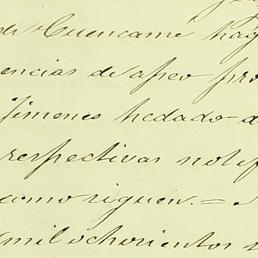 de Cuencame hay
encias de apeo pro
Jimenes hedado a
respectivas notif
amo siguen. =
mil ochocientos